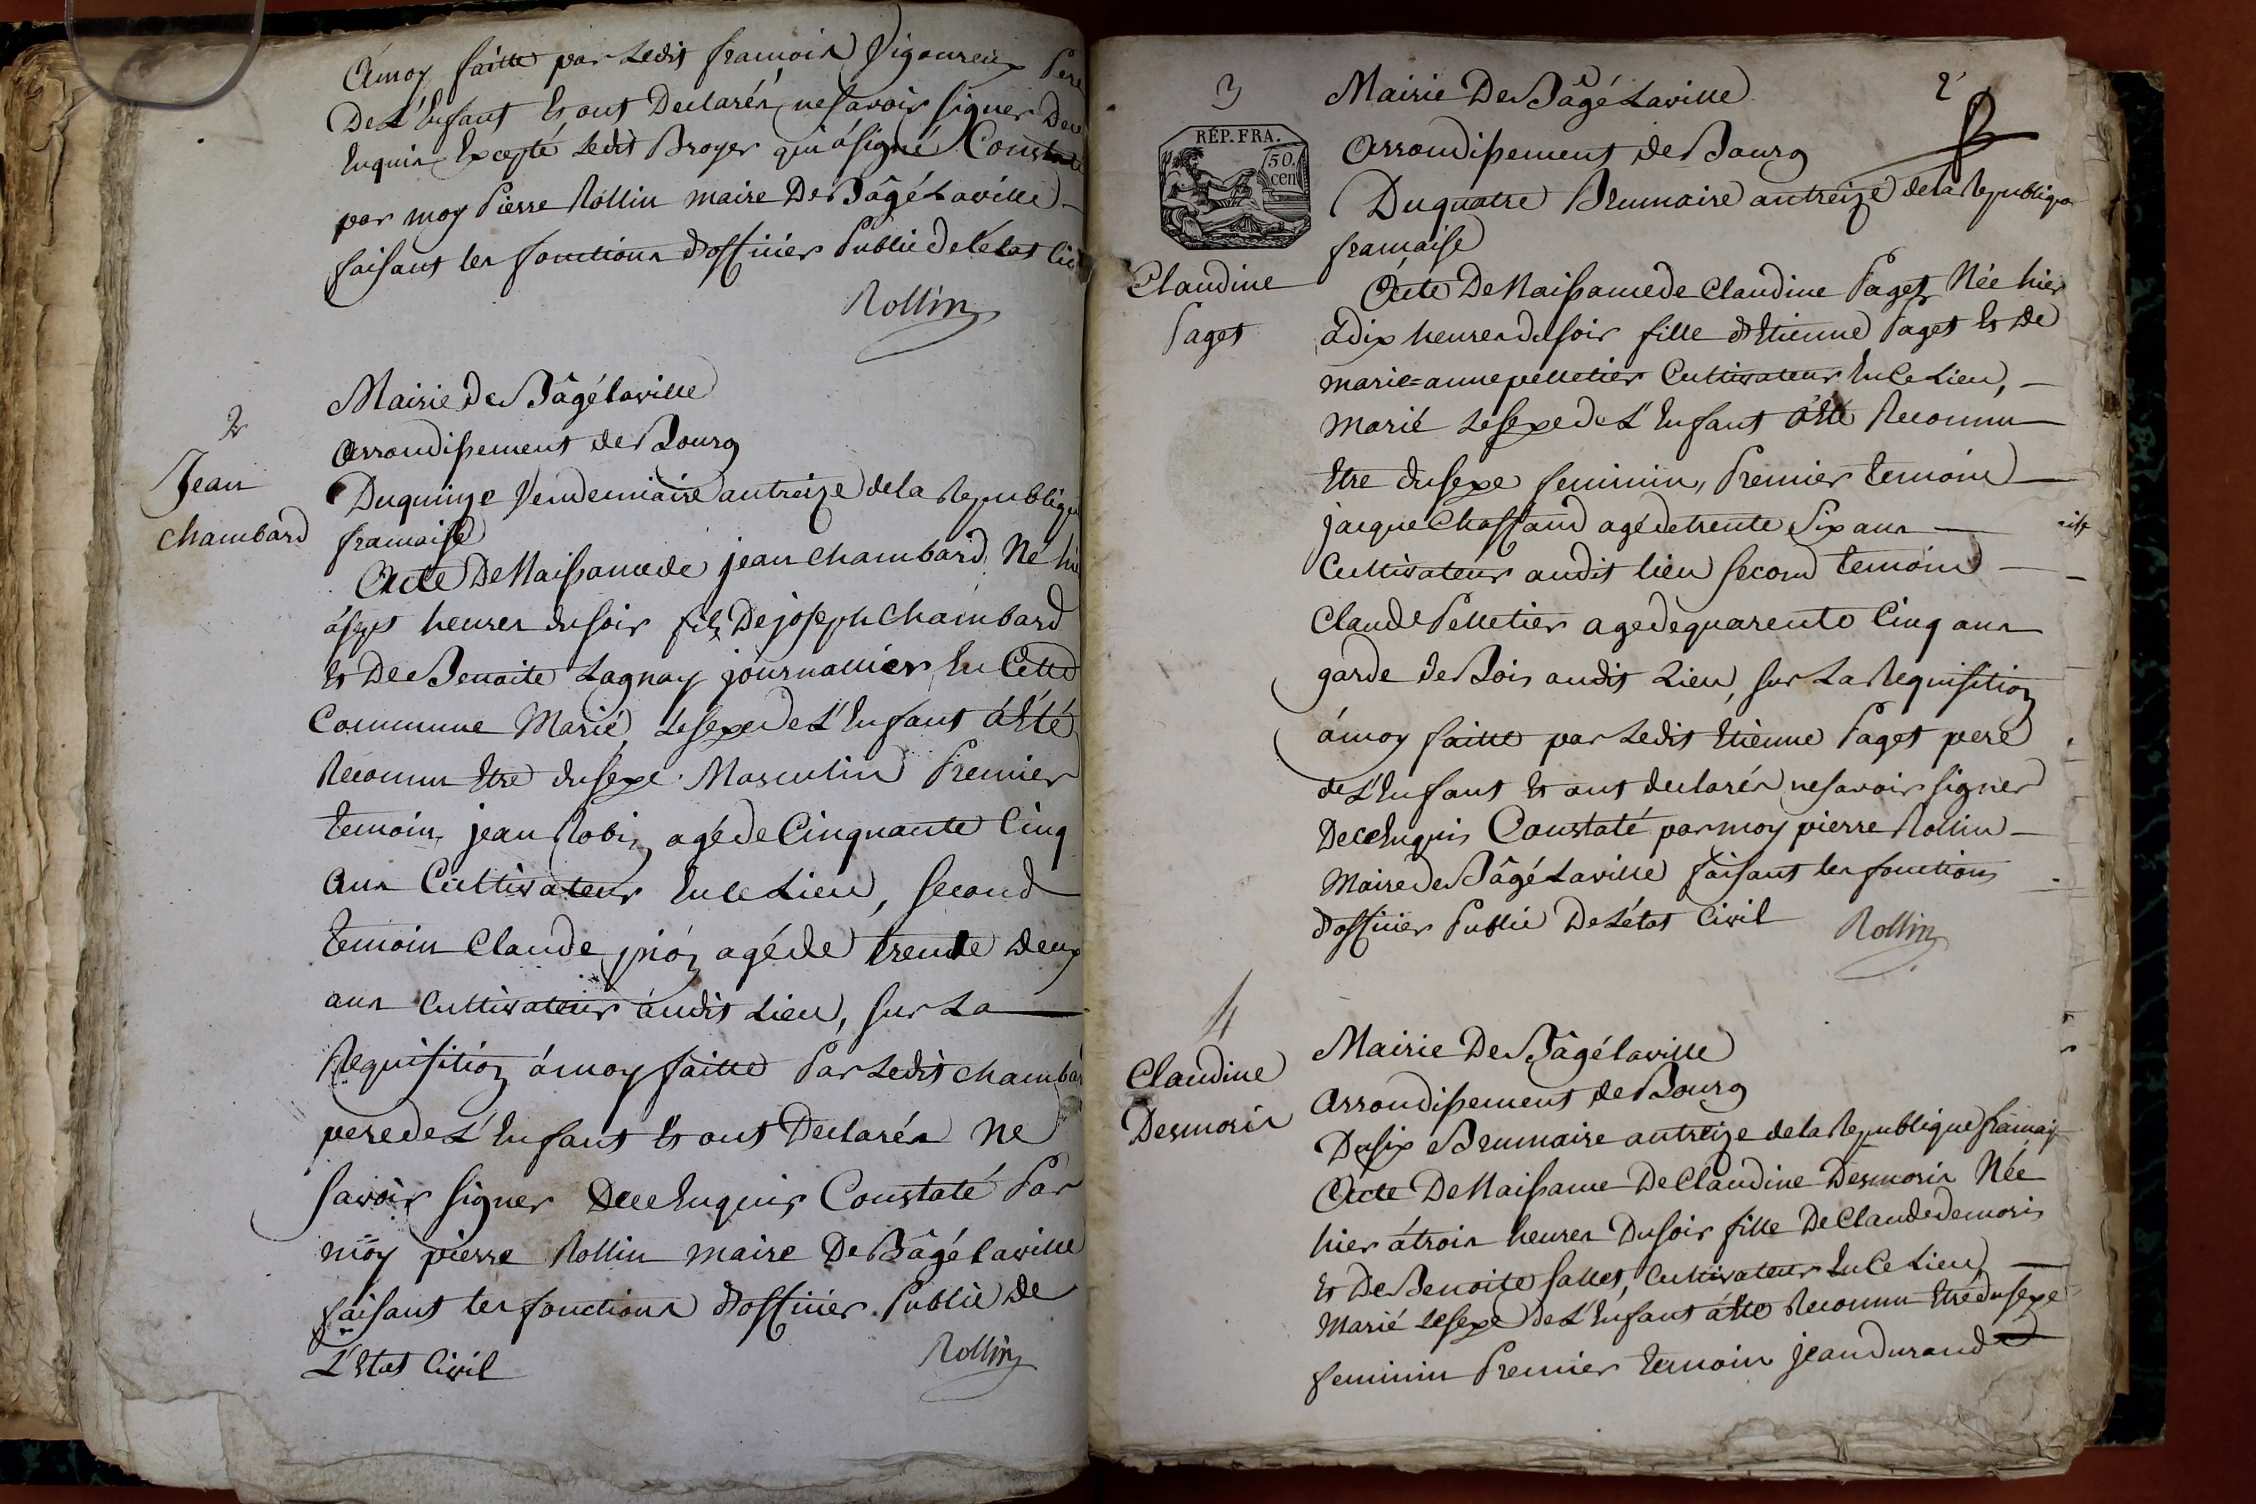 Amoy faitte par Ledit francois Vigoureux Pere
De L'Enfant Et ont Declarés ne savoir signer De ce
Enquis Excepté Ledit Broyer qui a signé Constaté
par moy Pierre Rollin maire De Bâgé Laville
faisant les fonctions d'officier Public de l'état Civ
Rollin
2
Jean
chambard
Mairie De Bâgé laville
Arrondissement de Bourg
Du quinze Vendemiaire an treize de la Republique
francaise
Acte De Naissance de jean chambard Né hier
à sept heures du soir fils De joseph chambard
Et De Benoite Lagnay journallier En Cette
Commune Marié Le sexe de L'Enfant à Eté
Reconnu Etre du sexe Masculin Premier
temoin jean Robin agé de Cinquante Cinq
ans Cultivateur En ce Lieu, second
temoin Claude pion agé de trente deux
ans Cultivateur audit Lieu, sur La
Requisition à moy faitte Par Ledit chambar
pere de L'Enfant Et ont Declarés Ne
savoir signer De ce Enquis Constaté Par
moy pierre Rollin maire De Bâgé laville
faisant les fonctions d'officier Public De
L'Etat Civil
Rollin
3
2
RÉP. FRA.
50.
cen
Claudine
Paget
Mairie De Bâgé Laville
Arrondissement de Bourg
Du quatre Brumaire an treize de la Republique
francaise
Acte De Naissance de Claudine Paget Née hier
à dix heures du soir fille d'Etienne Paget Et De
marie=anne pelletier Cultivateur En Ce Lieu,
Marié Le sexe de L'Enfant à Eté Reconnu
Etre du sexe feminin, Premier temoin
jacque Chossaud agé de trente Six ans
Cultivateur audit lieu second temoin
Claude Pelletier agé de quarente Cinq ans
garde de Bois audit Lieu, sur La Requisition
à moy faitte par Ledit Etienne Paget pere
de L'Enfant Et ont declarés ne savoir signer
De ce Enquis Constaté par moy pierre Rollin
Maire de Bâgé Laville faisant les fonctions
d'officier Public De L'état Civil
Rollin
4
Claudine
Desmoris
Mairie De Bâgé laville
Arrondissement de Bourg
Du six Brumaire an treize de la Republique francais
Acte De Naissance De Claudine Desmoris Née
hier à trois heures Du soir fille De Claude demoris
Et De Benoite sallet, Cultivateur En Ce Lieu
Marié Le sexe De L'Enfant à Eté Reconnu Etre du sexe
feminin Premier temoin jean durand